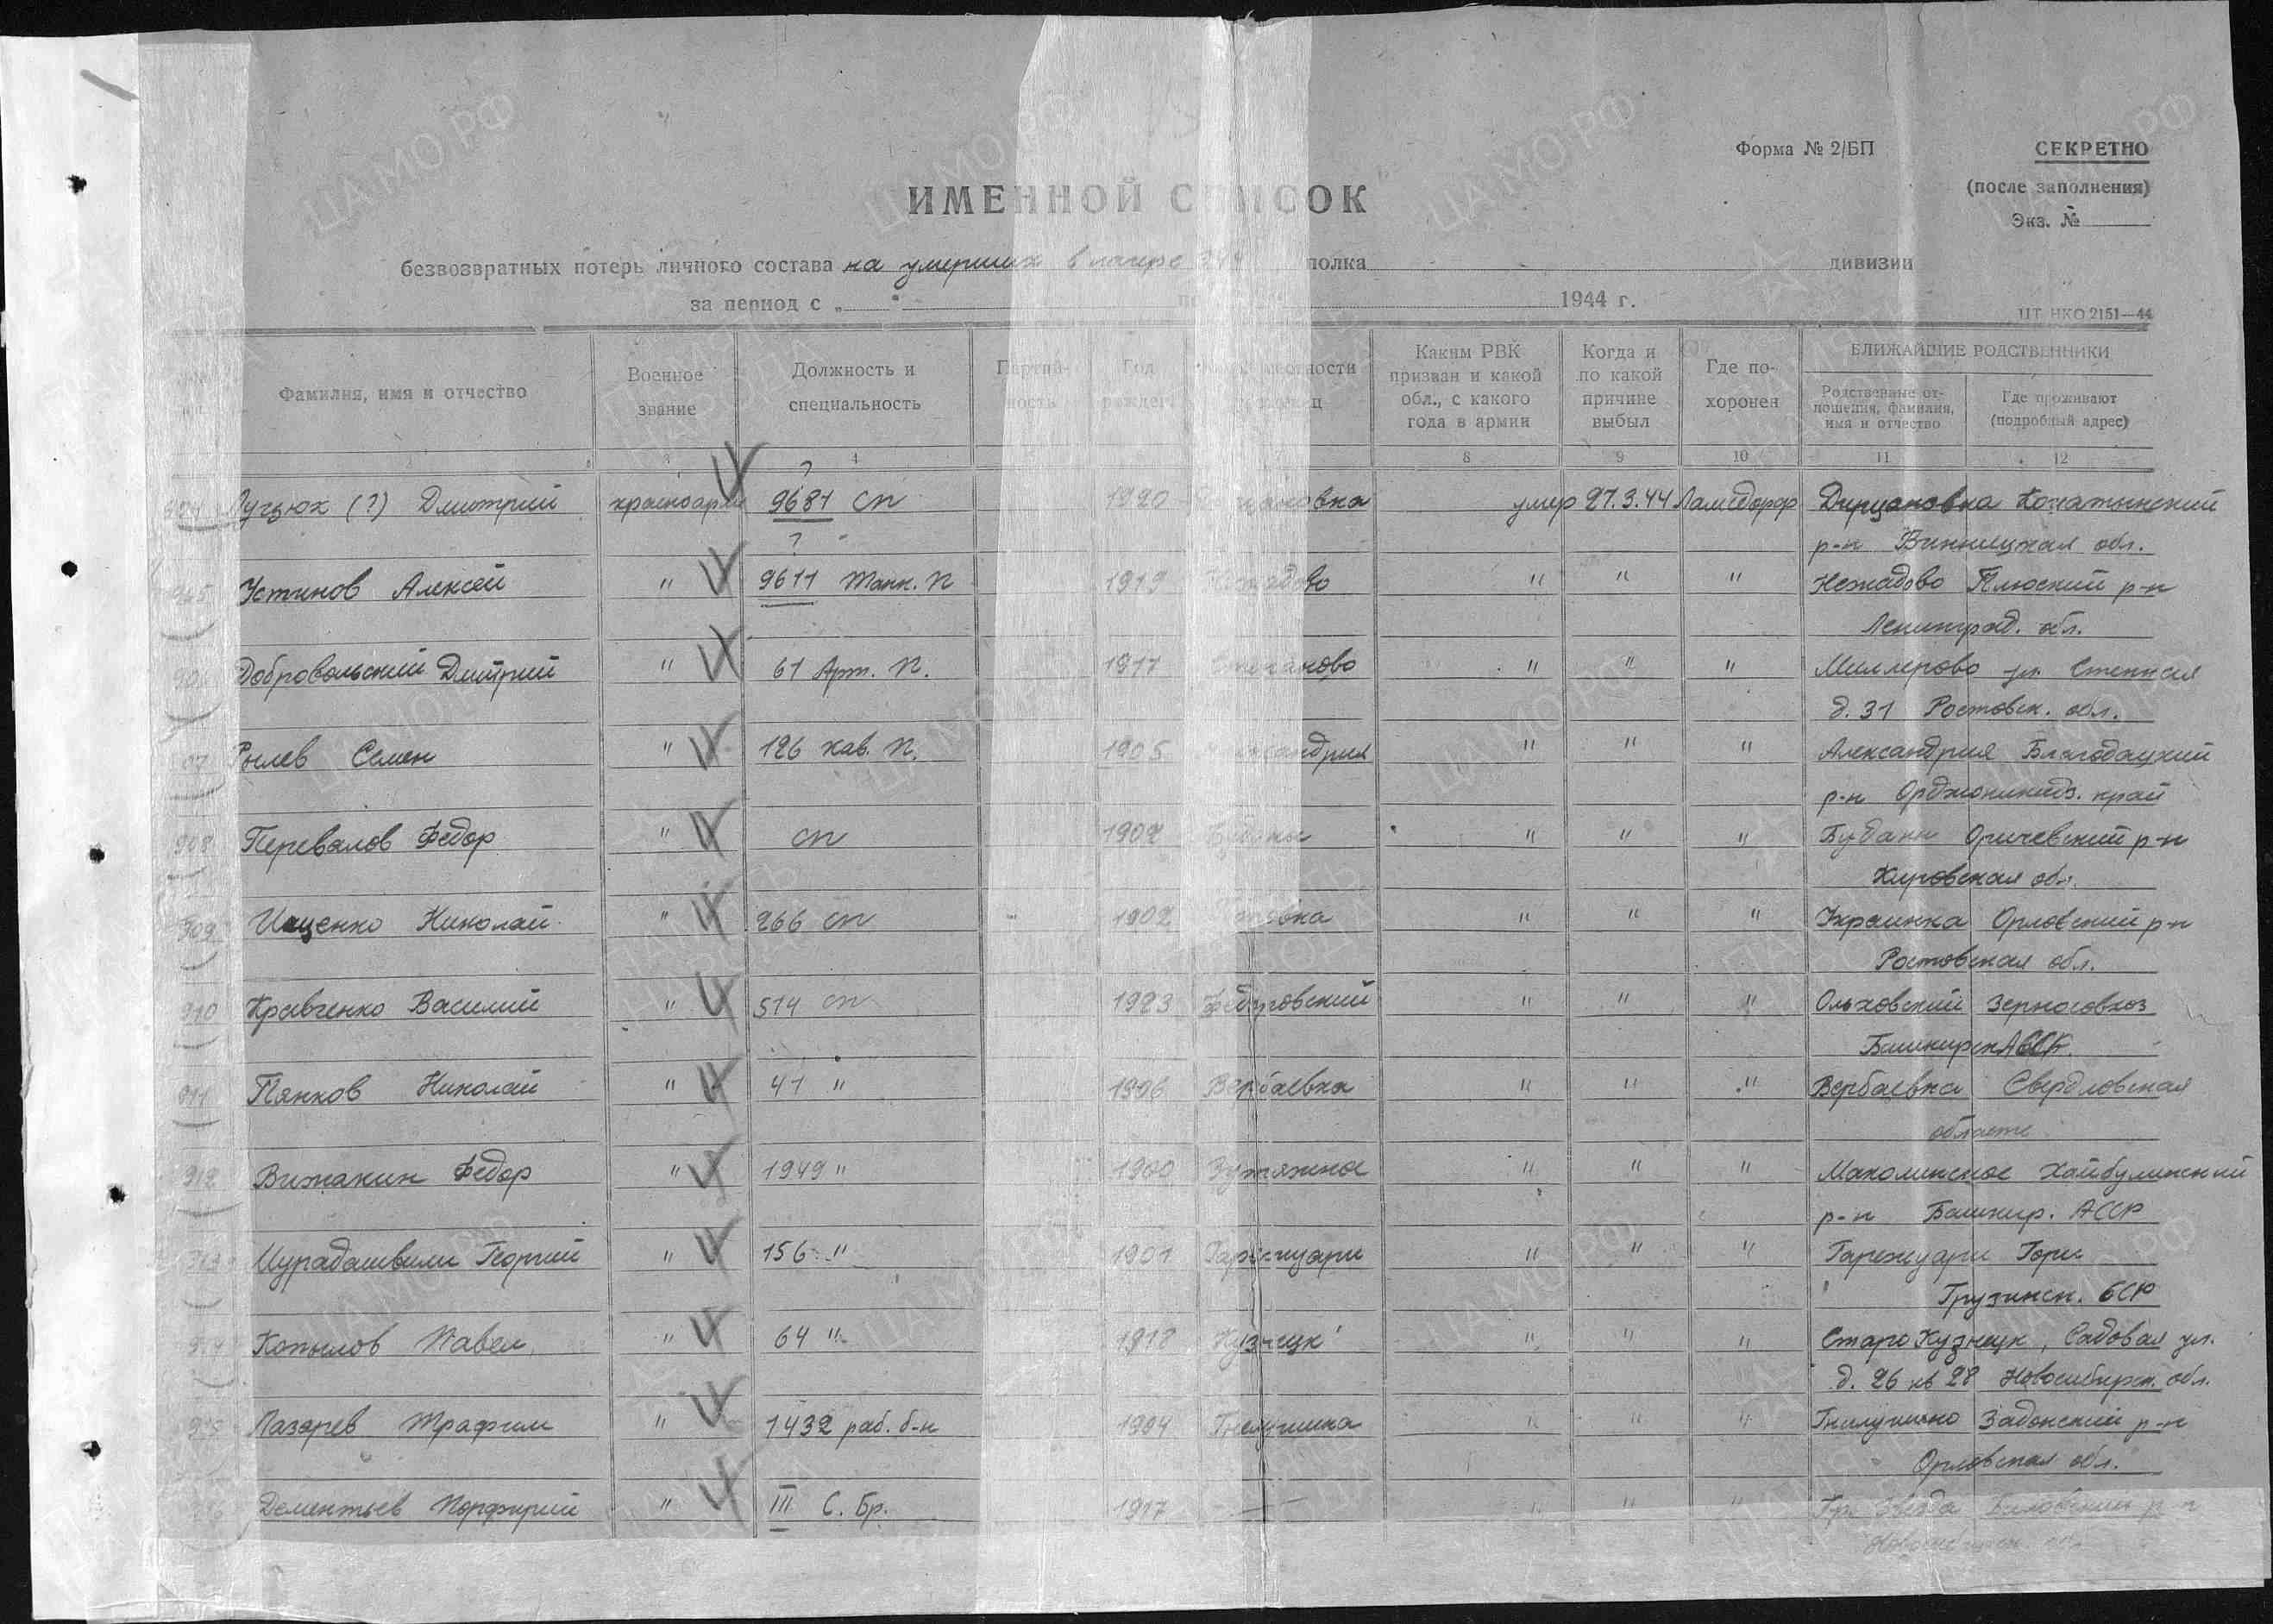 Форма № 2/БП
СЕКРЕТНО
(после заполнения)
Экз. №
ИМЕННОЙ СПИСОК
безвозвратных потерь личного состава на умерших в лагере полка дивизии
за период с „ “ по 1944 г.
ЦТ НКО 2151—44
Фамилия, имя и отчество
Военное звание
Должность и специальность
Партийность
Год рожден.
Каким РВК призван и какой обл., с какого года в армии
Когда и по какой причине выбыл
Где похоронен
БЛИЖАЙШИЕ РОДСТВЕННИКИ
Родственные отношения, фамилия, имя и отчество
Где проживают (подробный адрес)
4 8 9 10 11 12
(?) Дмитрий красноарм ? 9681 сп 1920 умер 27.3.44 Ламсдорф
р-н Винницкая обл.
905 Устинов Алексей " ? 9611 Танк. п 1919 Нежадово " " " Нежадово Плюский р-н
Ленинград. обл.
906 Добровольский Дмитрий " 61 Арт. п. 1911 " " " Миллерово ул. Степная
д. 31 Ростовск. обл.
907 Рылев Семен " 126 кав. п. 1905 Александрия " " " Александрия Благодацкий
р-н Орджоникидз. край
908 Перевалов Федор " сп 1902 " " " Оричевский р-н
Кировская обл.
909 Ищенко Николай " 266 сп 1902 " " " Украинка Орловский р-н
Ростовская обл.
910 Кравченко Василий " 514 сп 1923 Федоровский " " " Ольховский Зерносовхоз
Башкирск АССР.
911 Пянков Николай " 41 " Вербаевка " " " Вербаевка Свердловская
области
912 Вижакин Федор " 1949 " 1900 " " " Хайбулинский
р-н Башкир. АССР
913 Мурадашвили Георгий " 156 " 1901 Гарежуари " " " Гарежуари Гори
Грузинск. ССР
914 Копылов Павел " 64 " 1918 Кузнецк " " " Старо Кузнецк, Садовая ул.
д. 26 кв 28 Новосибирск. обл.
915 Лазарев Трафим " 1432 раб. б-н 1904 " " " Задонский р-н
Орловская обл.
916 Дементьев Порфирий " III С. Бр. 1917 — " " "